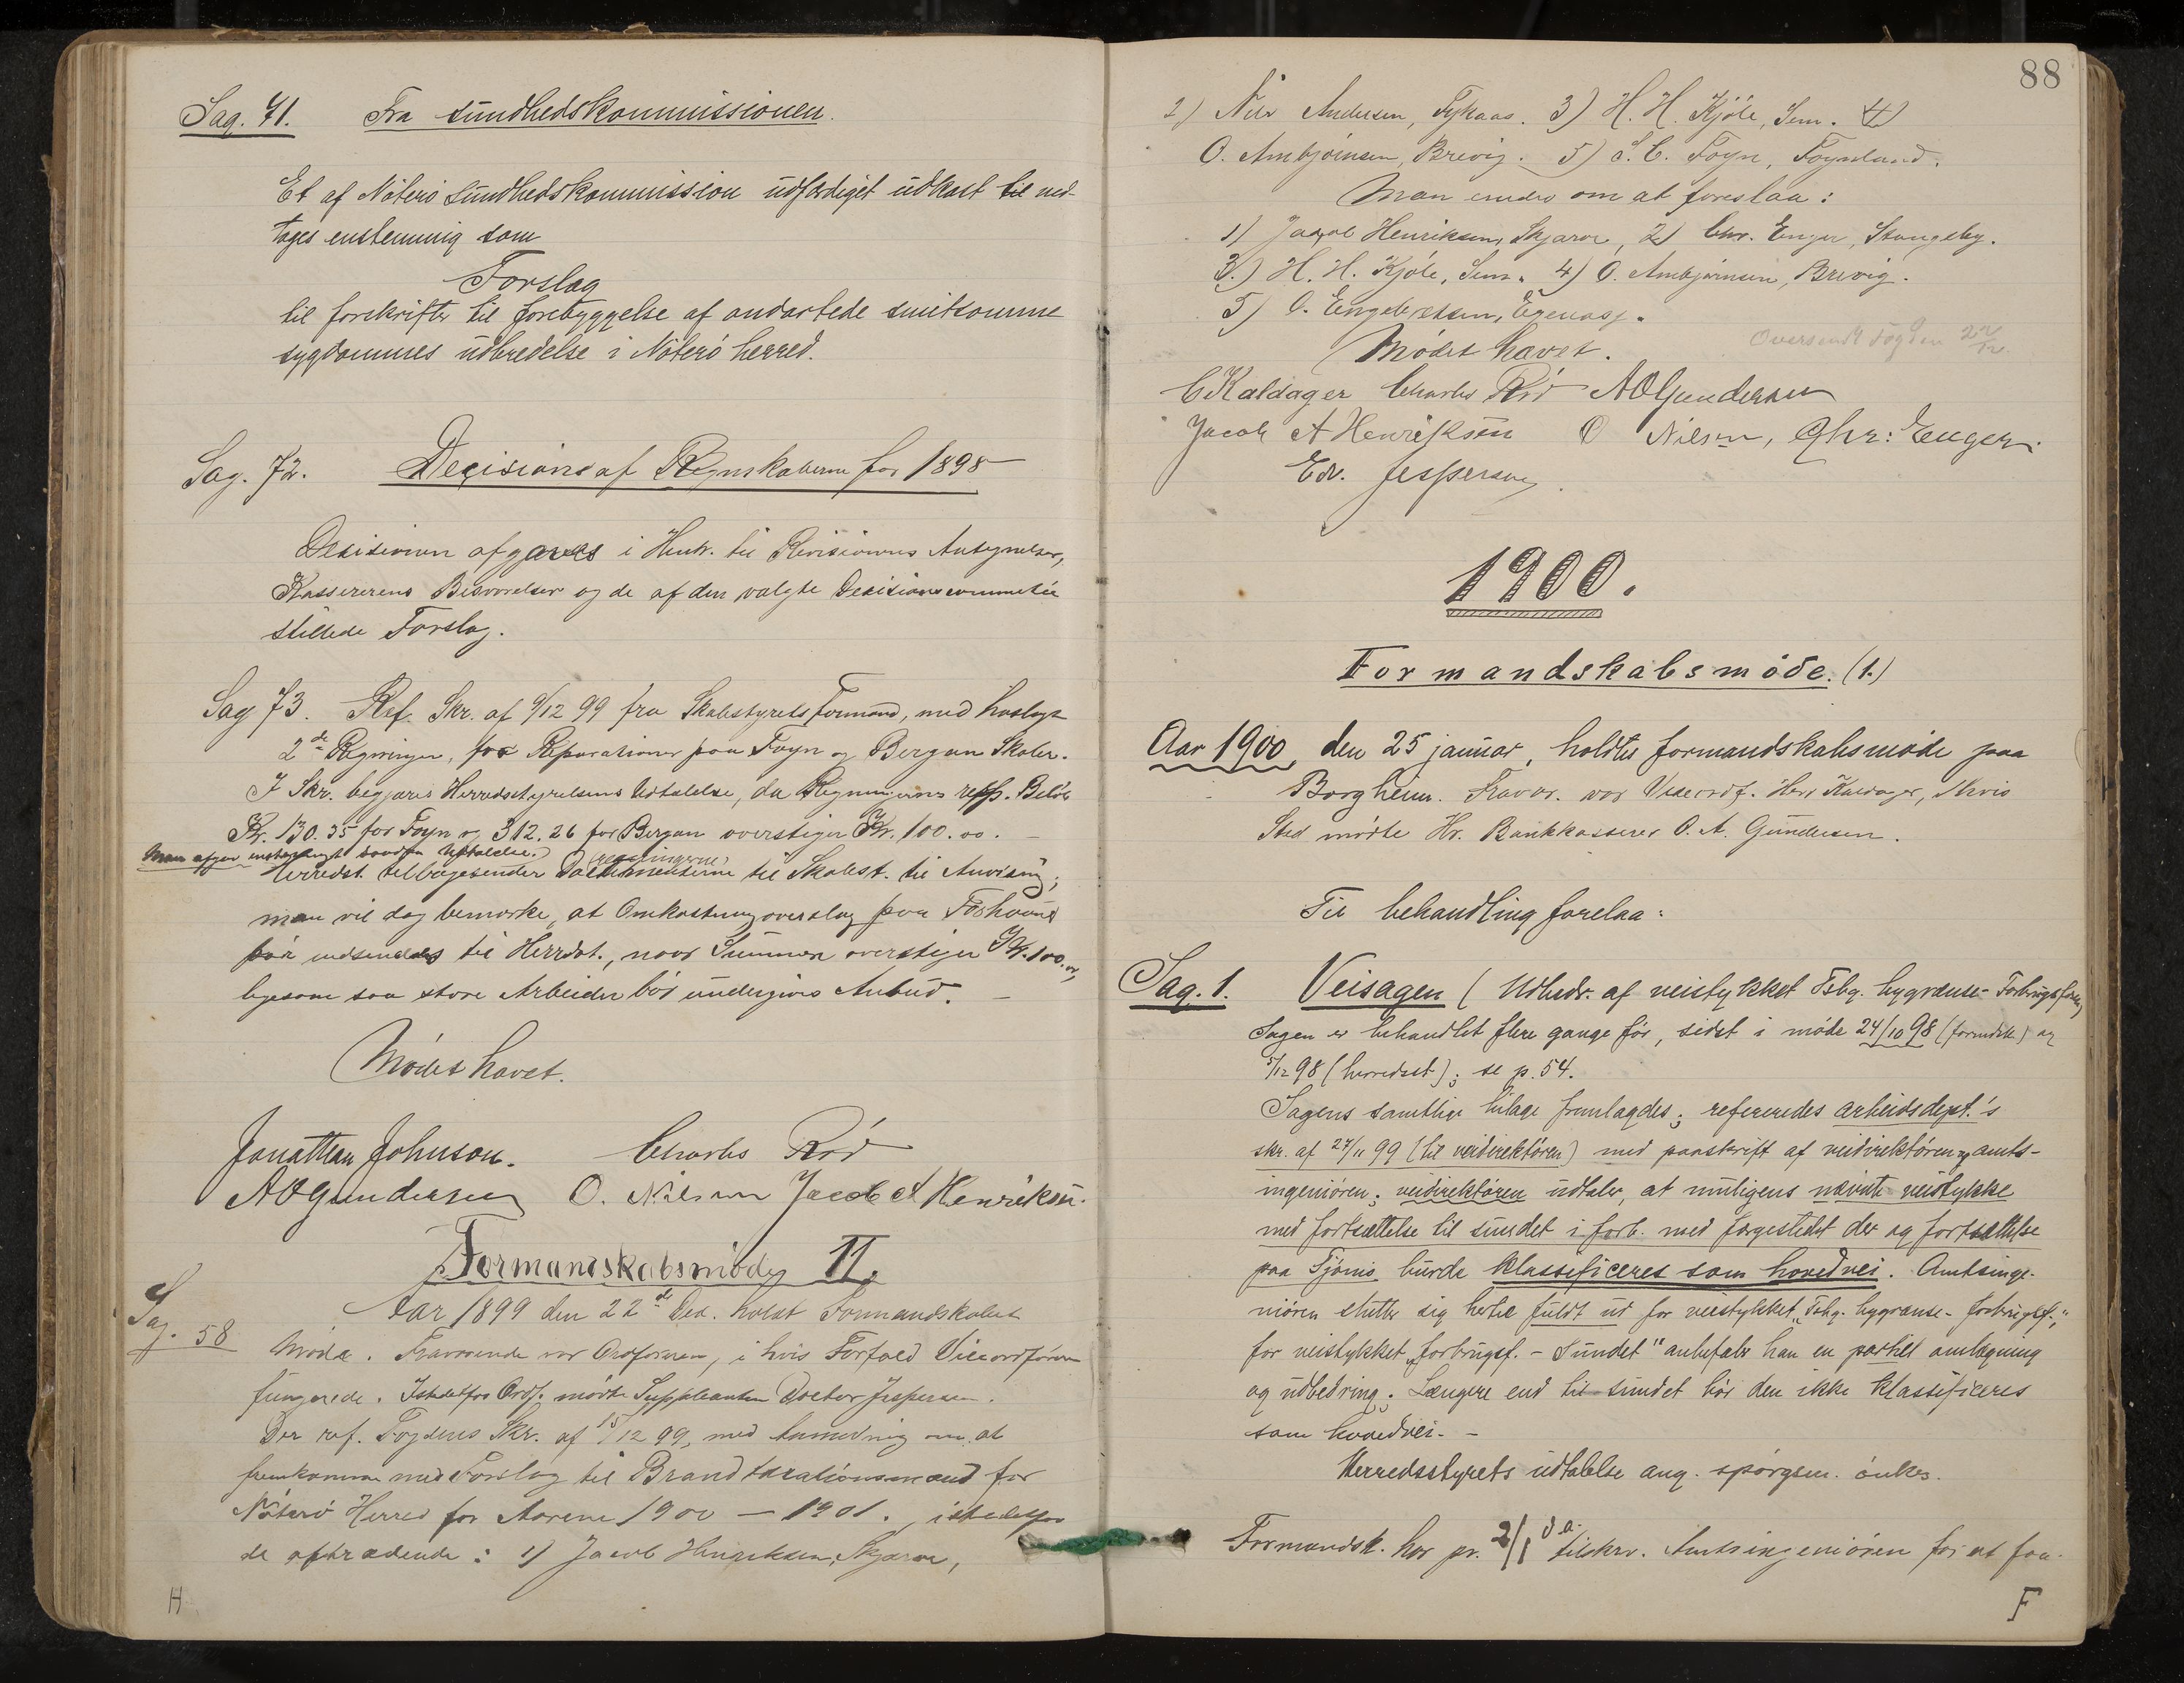 Sag. 71. Fra sundhedskommissionen.
Et af Nøterø sundhedskommission udfærdiget udkast til ved-
tages enstemmig som
Forslag
til forskrifter til forebyggelse af ondartede smitsomme
sygdommes udbredelse i Nøterø herred.
Sag. 72. Decisions af Regnskaberne for 1898
Decisionen afgaves i Henh. til Revisionens Antegnelser,
Kassererens Besvarelser og de af den valgte Decisionscommitée
stillede Forslag.
Sag 73. Ref. Skr. af 9/12 99 fra Skolestyrets Formand, med hoslagt
2de Regninger, for Reparationer paa Føyn og Bergan Skoler.
I Skr. begjæres Herredsstyrelsens Udtalelse, da Regningerne resp. Beløb
Kr. 130.35 for Føyn og 312.26 for Bergan overstiger Kr. 100.00. —
Man afgav enstemmigt saadan Udtalelse:
(regningerne)
Herredst. tilbagesender Dokumenterne til Skolest. til Anvisning;
man vil dog bemærke, at Omkostningsoverslag paa Forhaand
bør indsendes til Herredst., naar Summen overstiger Kr. 100.00,
ligesom saa store Arbeider bør undergives Anbud. —
Mødet hævet.
Jonathan Johnson. Charles Rød
A O Gundersen O. Nilsen Jacob A Henriksen.
Formandskabsmøde 11.
Sag. 58
Aar 1899 den 22de Dec. holdt Formandskabet
Møde. Fraværende var Ordføreren, i hvis Forfald Viceordføreren
fungerede. Istedetfor Ordf. mødte Suppleanten Doctor Jespersen.
Der ref. Fogdens Skr. af 15/12 99, med Anmodning om at
fremkomme med Forslag til Brandtaxationsmænd for
Nøterø Herred for Aarene 1900 — 1901, istedetfor
de aftrædende: 1) Jacob Henriksen, Skjærve,
H
88
2) Nils Andersen, Tykaas. 3) H. H. Kjøle, Sem. 4)
O. Ambjørnsen, Brevig. 5) S. C. Føyn, Føynland.
Man enedes om at foreslaa:
1) Jacob Henriksen, Skjærve, 2) Chr. Enger, Stangeby.
3.) H. H. Kjøle, Sem. 4) O. Ambjørnsen, Brevig.
5) O. Engebretsen, Egenæs.
Oversendt Fogden 22/12.
Mødet hævet.
C Kaldager Charles Rød A O Gundersen
Jacob A Henriksen O Nilsen, Chr: Enger.
Edv. Jespersen.
1900.
Formandskabsmøde. (1.)
Aar 1900, den 25 januar, holdtes formandskabsmøde paa
Borgheim. Fravær. var Viceordf. Herr Kaldager, i hvis
Sted mødte Hr. Bankkasserer O. A. Gundersen.
Til behandling forelaa:
Sag. 1. Veisagen (Udbedr. af veistykket Tsbg. bygrænse - Forbrugsforen.)
Sagen er behandlet flere gange før, sidst i møde 24/10 98 (formdsk.) og
5/12 98 (herredsst); se p. 54.
Sagens samtlige bilage fremlagdes; refereredes arbeidsdept.'s
skr. af 27/11 99 (til veidirektøren) med paaskrift af veidirektøren og amts-
ingeniøren; veidirektøren udtaler, at muligens nævnte veistykke
med fortsættelse til sundet i forb. med færgestedet der og fortsættelse
paa Tjømø burde klassificeres som hovedvei. Amtsinge-
niøren slutter sig hertil fuldt ud for veistykket "Tsbg. bygrænse - forbrugsf.";
for veistykket "forbrugsf. - Sundet" anbefaler han en partiel omlægning
og udbedring; Længere end til sundet bør den ikke klassificeres
som hovedvei. -
Herredsstyrets udtalelse ang. spørgsm. ønkes.
Formandsk. har pr. 2/1 d.a. tilskrv. Amtsingeniøren for at faa
F